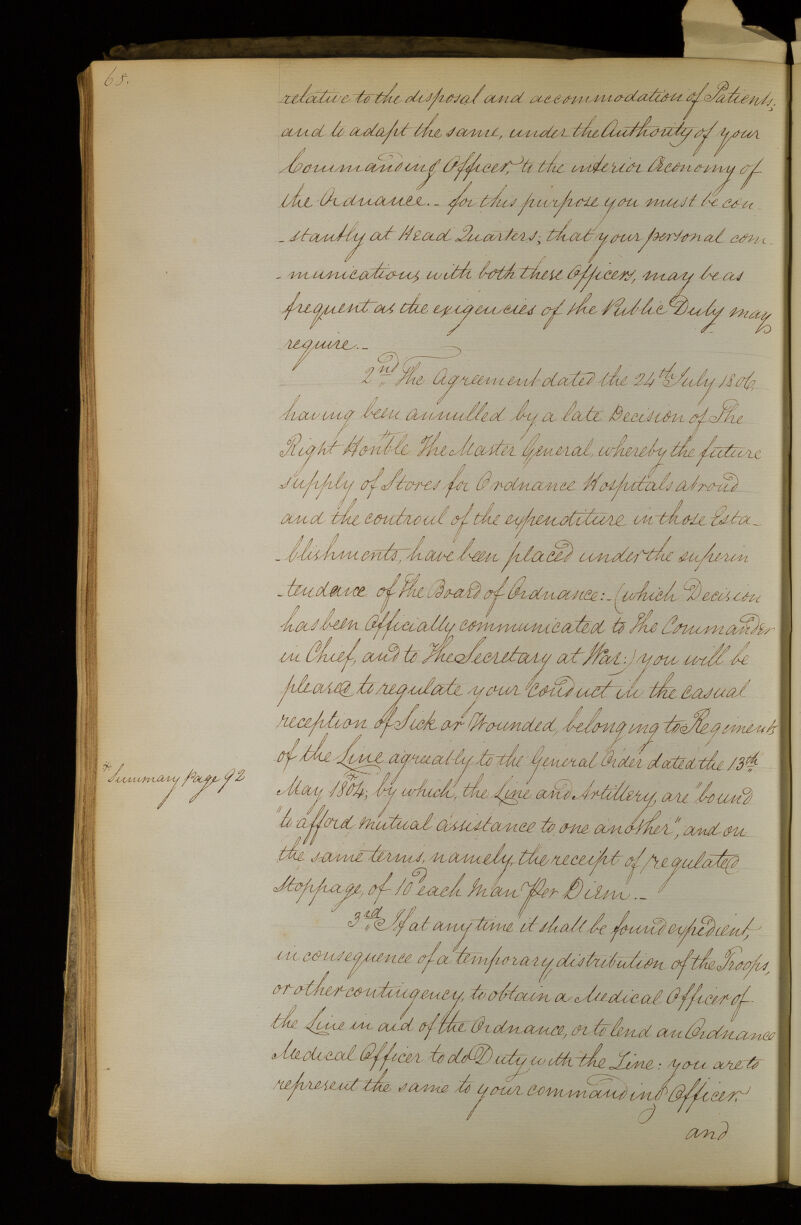 68.
relative to the disposal and accommodation of Patients;
and to adapt the same, under the Authority of your
Commanding Officer, to the interior Œconomy of
the Ordnance._ for this purpose you must be con
-stantly at Head Quarters; that your personal com-
-munications with both these Officers, may be as
frequent as the exigencies of the Public Duty may
require._
2nd The Agreement dated the 24th July 1806
having been annulled by a late Decision of The
Right Honble The Master General, whereby the future
supply of Stores for Ordnance Hospitals abroad
and the controul of the expenditure in those Esta_
_blishments, have been placed under the superin
_tendance of The Board of Ordnance:_ (which Decision
has been Officially communicated to The Commander
in Chief, and to The Secretary at War:) you will be
pleased to regulate your conduct in the casual
reception of Sick or Wounded, belonging to Regiments
of the Line agreeably to the General Order dated the 13th
* Summary Page 92
May 1804*; by which, the Line and Artillery, are "bound
"to afford mutual assistance to one another", and on
the same terms, namely, the receipt of regulated
Stoppage, of 10d each Man Per Diem._
3rd If at any time it shall be found expedient,
in consequence of a temporary distribution of the Troops,
or other contingency, to obtain a Medical Officer of
the Line in aid of the Ordnance, or to lend an Ordnance
Medical Officer to do Duty with the Line: you are to
represent the same to your commanding Officer.
and